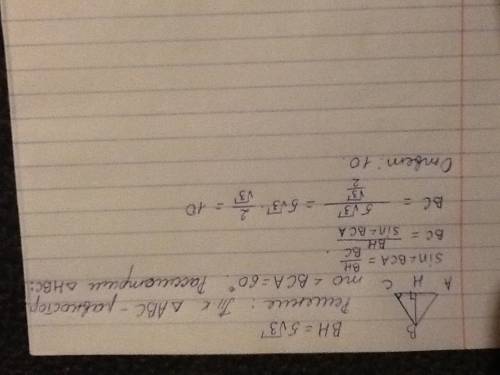 BH = 5√3
Решение: Т.к ΔABC - равностор.
то ∠BCA = 60°. Рассмотрим ΔHBC:
B
A H C
sin∠BCA = BH/BC
BC = BH/sin∠BCA
BC = 5√3/(√3/2) = 5√3 · 2/√3 = 10
Ответ: 10.